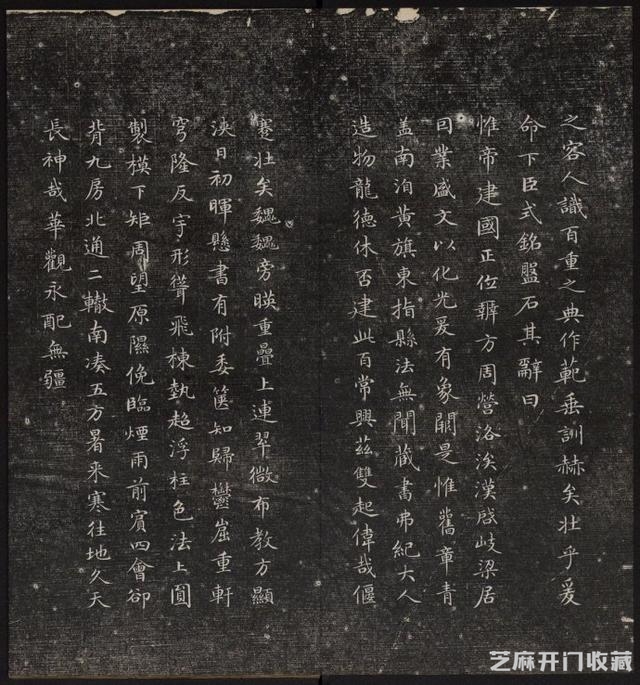 之容人識百重之典作範垂訓赫矣壯乎爰
命下臣式銘盤石其辭曰
惟帝建國正位辨方周營洛涘漢啟岐梁居
因業盛文以化光爰有象闕是惟舊章青
盖南洎黄旗東指縣法無聞藏書弗紀大人
造物龍德休否建此百常興茲雙起偉哉偃
蹇壯矣巍巍旁暎重疊上連翠微布教方顯
浹日初暉懸書有附委篋知歸欝崫重軒
穹隆反宇形聳飛棟勢超浮柱色法上圓
製模下矩周望原隰俛臨煙雨前賓四會卻
背九房北通二轍南湊五方暑来寒往地久天
長神哉華觀永配無疆
芝麻开门收藏